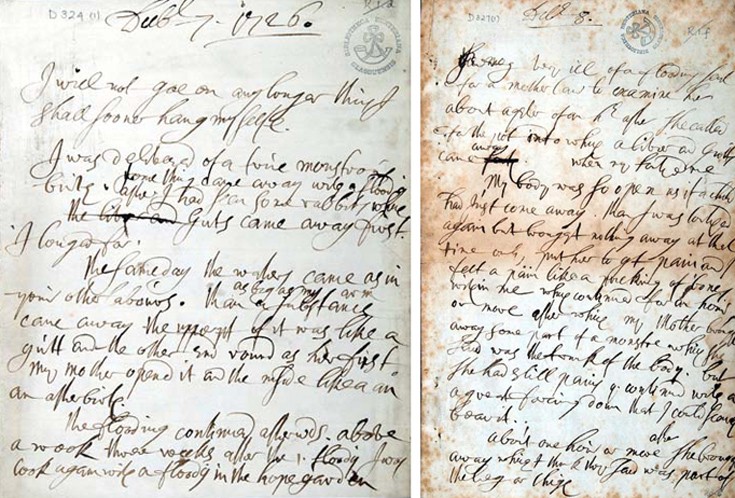 D 324 (1)
Decbr 7. 1726.
I will not goe on any longer things
shall sooner hang my selfe.
I was delivered of a true monstro
birth. some thing came away wth a floodig
after I had seen some rabbits, wch
the Guts came away first.
I longed for.
the same day the waters came as in
your other labours. then a substance
as big as my arm
came away the uppert of it was like a
gutt and the other End round as her first
my mother opend it and the inside like a an
an afterbirth.
the flooding continued afterwds. above
a week three weeks after the 1. floody I way
took again wth a floody in the hope garden
D 327(1)
Decbr 8.
very ill of a flooding send
for a mother law to examine her
about a of an hr. after she called
for the pot into which a liver and Gutts
came away when my fath came
My body was so open as if a child
had Just come away. then I was
again but brought nothing away at that
time only put her to gt pain and I
felt a pain like a pricking of bones
within me which continued for an hour
or more after which my Mother brough
away some part of a monstre which she
said was the trunk of the body. but
she had still pains yt continued with a
great forcing down that I could scarce
bear it.
about one hour or more after she brough
away which they said was part of
the leg or thigh